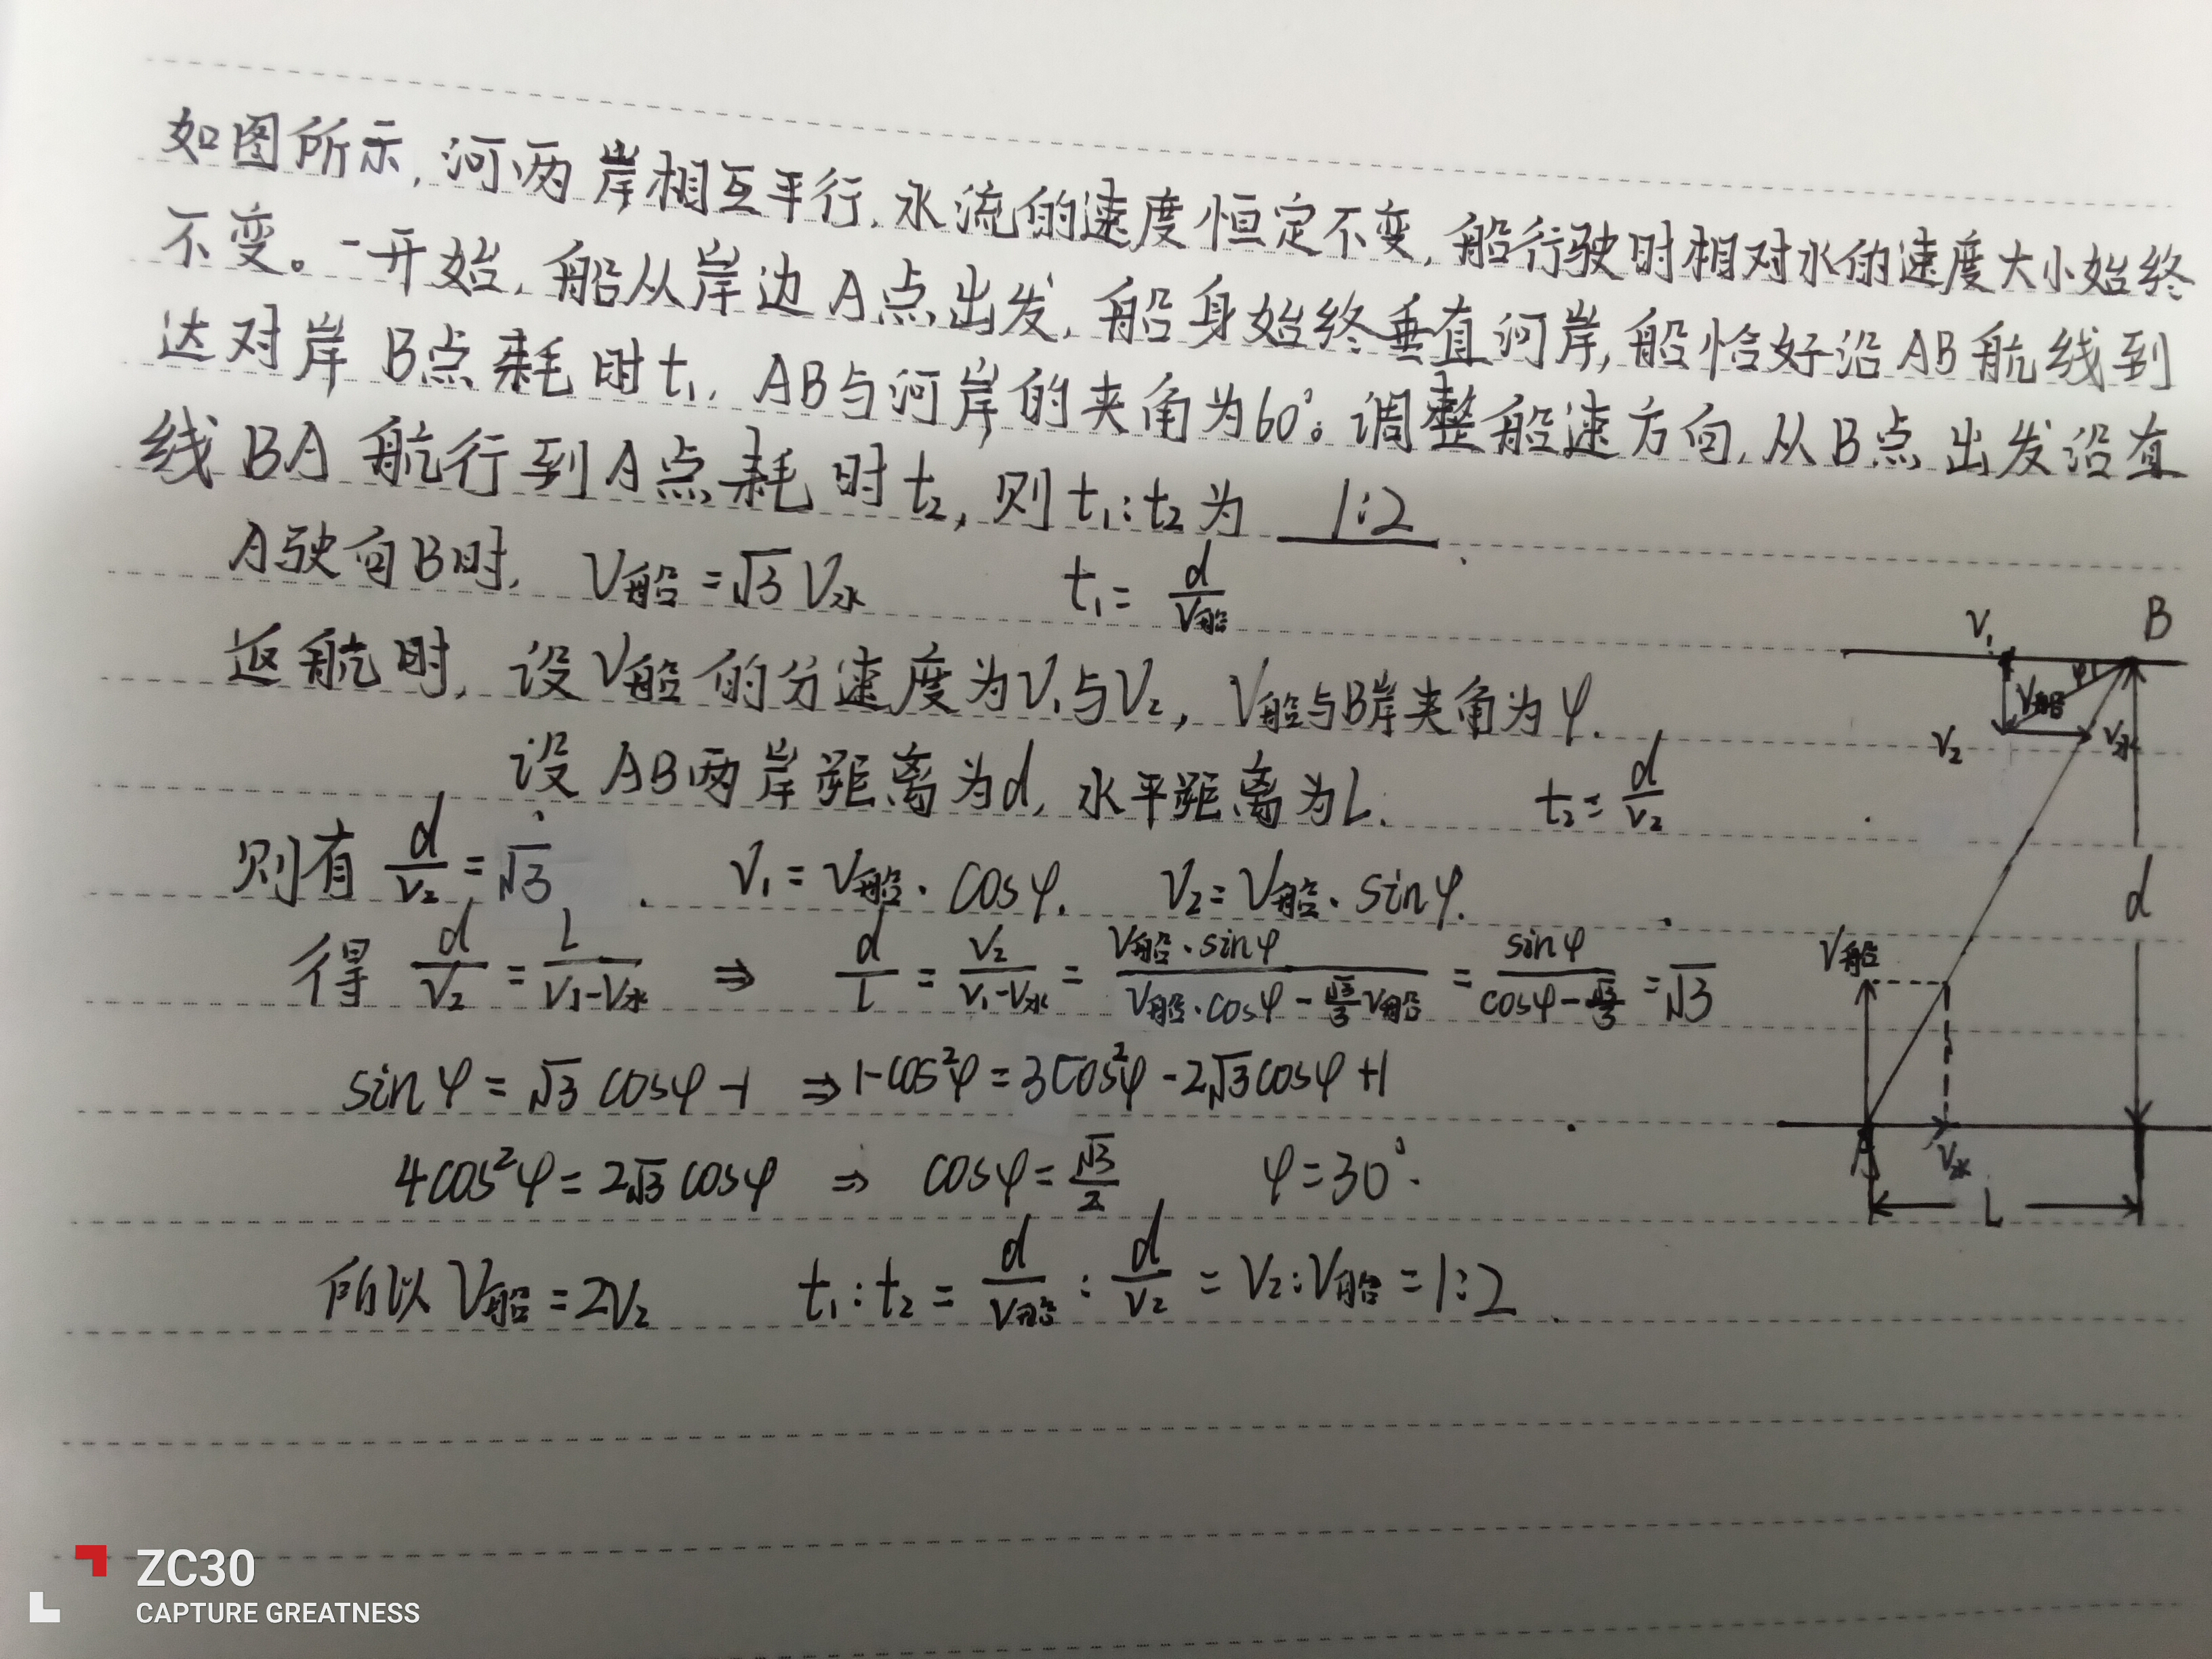 如图所示,河两岸相互平行.水流的速度恒定不变,船行驶时相对水的速度大小始终
不变。一开始,船从岸边A点出发,船身始终垂直河岸,船恰好沿AB航线到
达对岸B点耗时t₁.AB与河岸的夹角为60°。调整船速方向,从B点出发沿直
线BA航行到A点耗时t₂,则t₁:t₂为 1:2 .
A驶向B时, V船=√3V水 t₁=d/V船
返航时,设V船的分速度为V₁与V₂,V船与B岸夹角为φ.
设AB两岸距离为d,水平距离为L. t₂=d/V₂
则有 d/V₂=√3 . V₁=V船·cosφ. V₂=V船·sinφ.
得 d/V₂=L/(V₁-V水) ⇒ d/L=V₂/(V₁-V水)=V船·sinφ/(V船·cosφ-√3/3V船)=sinφ/(cosφ-√3/3)=√3
sinφ=√3cosφ-1 ⇒1-cos²φ=3cos²φ-2√3cosφ+1
4cos²φ=2√3cosφ ⇒ cosφ=√3/2 φ=30°.
所以V船=2V₂ t₁:t₂=d/V船:d/V₂=V₂:V船=1:2.
V₁
B
φ
V船
V₂
V水
d
V船
A
V水
L
ZC30
CAPTURE GREATNESS